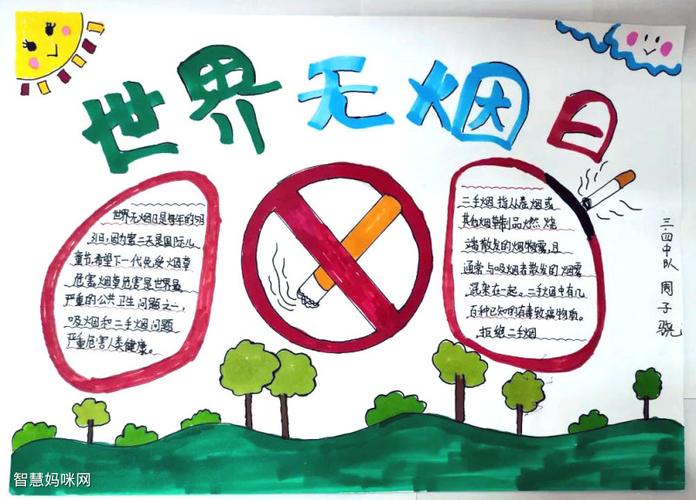 世界无烟日
世界无烟日是每年的5月
31日,因为第二天是国际儿
童节,希望下一代免受烟草
危害。烟草危害是世界最
严重的公共卫生问题之一,
吸烟和二手烟问题
严重危害人类健康。
二手烟指从卷烟或
其他烟草制品燃烧
端散发的烟物雾,且
通常与吸烟者散发的烟雾
混杂在一起。二手烟中有几
百种已知的有毒致癌物质。
拒绝二手烟
三.四中队 周子骁
智慧妈咪网